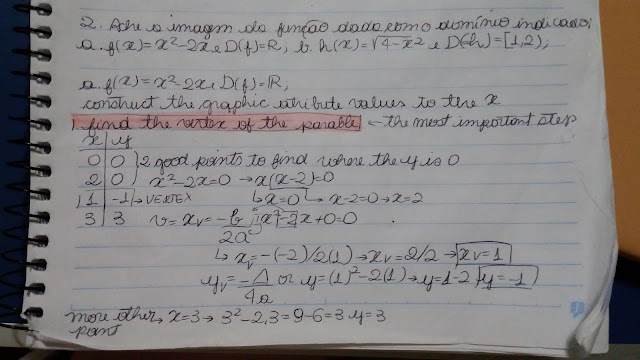 2. Ache a imagem da função dada como domínio indicado;
a. f(x)=x²-2x e D(f)=R, b. h(x)=√4-x² e D(h)=[1,2),
a. f(x)=x²-2x e D(f)=R,
construct the graphic atribute values to the x
1 find the vertex of the parable ← the most important step
x | y
0 | 0 } 2 good points to find where the y is 0
2 | 0 x²-2x=0 → x(x-2)=0
1 | -1 ↳ VERTEX ↳ x=0 ↳ x-2=0 → x=2
3 | 3 v= xv= -b/2a 1x²-2x+0=0
↳ xv=-(-2)/2(1) → xv=2/2 → xv=1
yv=-Δ/4a or y=(1)²-2(1) → y=1-2, y=-1
more other point → x=3 → 3²-2.3=9-6=3 y=3